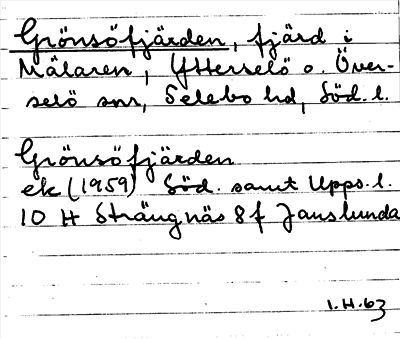 Grönsöfjärden, fjärd i
Mälaren, Ytterselö o. Över-
selö snr, Selebo hd, Söd. l.
Grönsöfjärden
ek (1959) Söd. samt Upps. l.
10 H Strängnäs 8f Janslunda
1.H.63